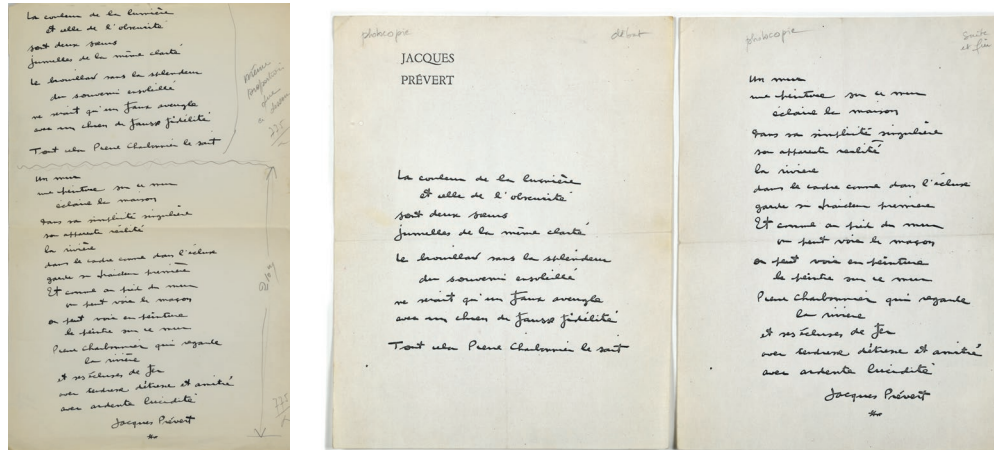 La couleur de la lumière
et celle de l'obscurité
sont deux sœurs
jumelles de la même clarté
Le brouillard sans la splendeur
du souvenir ensoleillé
ne serait qu'un faux aveugle
avec un chien de fausse fidélité
Tout cela Pierre Charbonnier le sait
même
que
775
Un mur
une peinture sur ce mur
éclaire la maison
dans sa simplicité singulière
son apparente réalité
la rivière
dans le cadre comme dans l'écluse
garde sa fraîcheur première
Et comme au pied du mur
on peut voir le maçon
on peut voir en peinture
le peintre sur ce mur
Pierre Charbonnier qui regarde
la rivière
et ses écluses de fer
avec tendresse détresse et amitié
avec ardente lucidité
Jacques Prévert
775
photocopie
début
JACQUES
PRÉVERT
La couleur de la lumière
et celle de l'obscurité
sont deux sœurs
jumelles de la même clarté
Le brouillard sans la splendeur
du souvenir ensoleillé
ne serait qu'un faux aveugle
avec un chien de fausse fidélité
Tout cela Pierre Charbonnier le sait
photocopie
Suite
et fin
Un mur
une peinture sur ce mur
éclaire la maison
dans sa simplicité singulière
son apparente réalité
la rivière
dans le cadre comme dans l'écluse
garde sa fraîcheur première
Et comme au pied du mur
on peut voir le maçon
on peut voir en peinture
le peintre sur ce mur
Pierre Charbonnier qui regarde
la rivière
et ses écluses de fer
avec tendresse détresse et amitié
avec ardente lucidité
Jacques Prévert